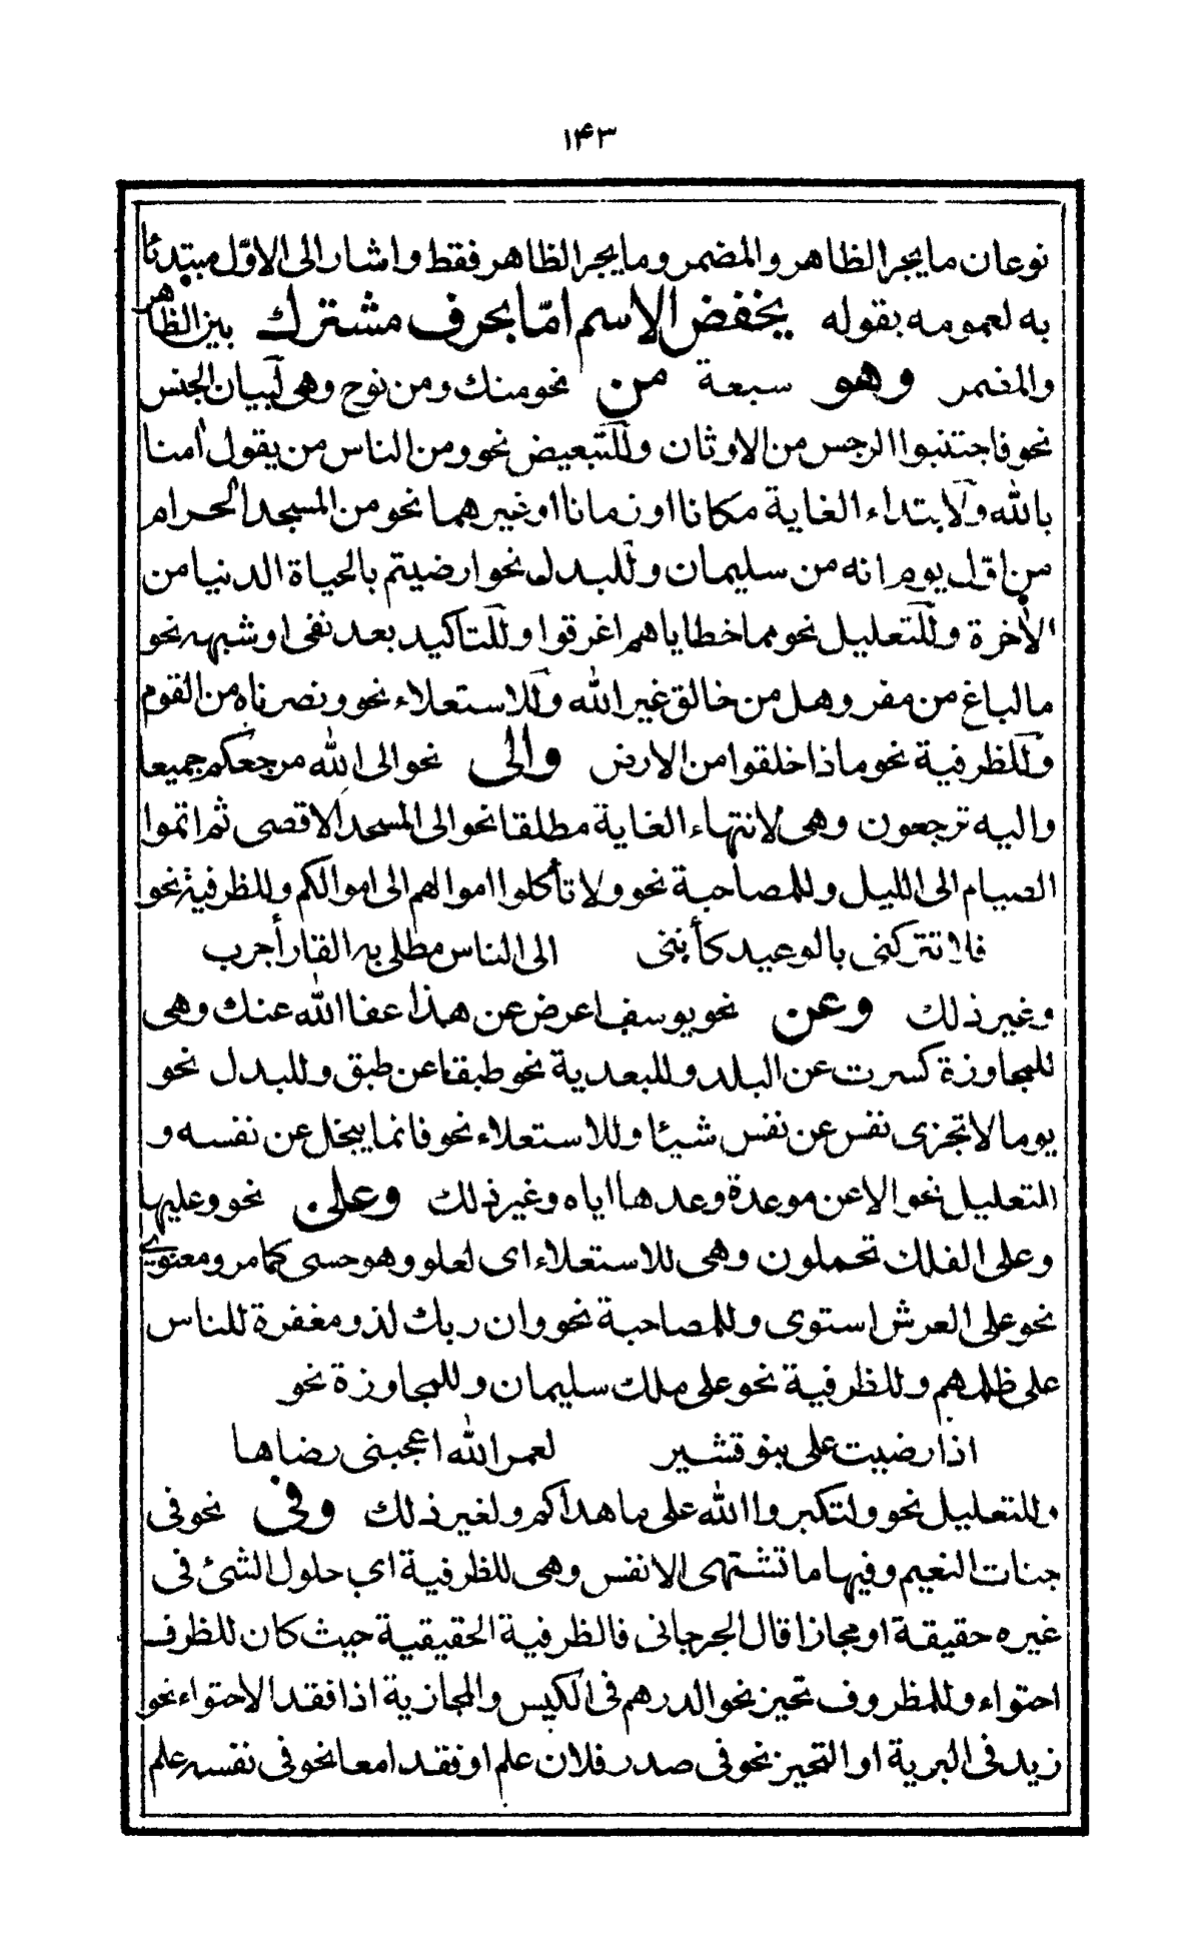 ۱۴۳
نوعان ما يجر الظاهر والمضمر وما يجر الظاهر فقط واشار الى الاوّل مبتدئا
به لعمومه بقوله يخفض الاسم امّا بحرف مشترك بين الظاهر
والمضمر وهو سبعة من نحو منك ومن نوح وهى لبيان الجنس
نحو فاجتنبوا الرجس من الاوثان وللتبعيض نحو ومن الناس من يقول امنا
بالله ولابتداء الغاية مكانا او زمانا او غيرهما نحو من المسجد الحرام
من اوّل يوم انه من سليمان وللبدل نحو ارضيتم بالحياة الدنيا من
الأخرة وللتعليل نحو مما خطاياهم اغرقوا وللتاكيد بعد نفى او شبهه نحو
ما لباغ من مفر وهل من خالق غير الله وللاستعلاء نحو ونصرناه من القوم
وللظرفية نحو ماذا خلقوا من الارض والى نحو الى الله مرجعكم جميعا
واليه ترجعون وهى لانتهاء الغاية مطلقا نحو الى المسجد الاقصى ثم اتموا
الصيام الى الليل وللمصاحبة نحو ولا تأكلوا اموالهم الى اموالكم وللظرفية نحو
فلا تتركنى بالوعيد كأننى الى الناس مطلى به القار أجرب
وغير ذلك وعن نحو يوسف اعرض عن هذا عفا الله عنك وهى
للمجاوزة كسرت عن البلد وللبعدية نحو طبقا عن طبق وللبدل نحو
يوما لا تجزى نفس عن نفس شيئا وللاستعلاء نحو فانما يبخل عن نفسه و
التعليل نحو الا عن موعدة وعدها اياه وغير ذلك وعلى نحو وعليها
وعلى الفلك تحملون وهى للاستعلاء اى لعلو وهو حسى كما مر ومعنوى
نحو على العرش استوى وللمصاحبة نحو وان ربك لذو مغفرة للناس
على ظلمهم وللظرفية نحو على ملك سليمان وللمجاوزة نحو
اذا رضيت على بنو قشير لعمر الله اعجبنى رضاها
وللتعليل نحو ولتكبروا الله على ما هداكم ولغير ذلك وفى نحو فى
جنات النعيم وفيها ما تشتهى الانفس وهى للظرفية اى حلول الشئ فى
غيره حقيقة او مجازا قال الجرجانى فالظرفية الحقيقية حيث كان للظرف
احتواء وللمظروف تحيز نحو الدرهم فى الكيس والمجازية اذا فقد الاحتواء نحو
زيد فى البرية او التحيز نحو فى صدر فلان علم او فقد امعا نحو فى نفسه علم